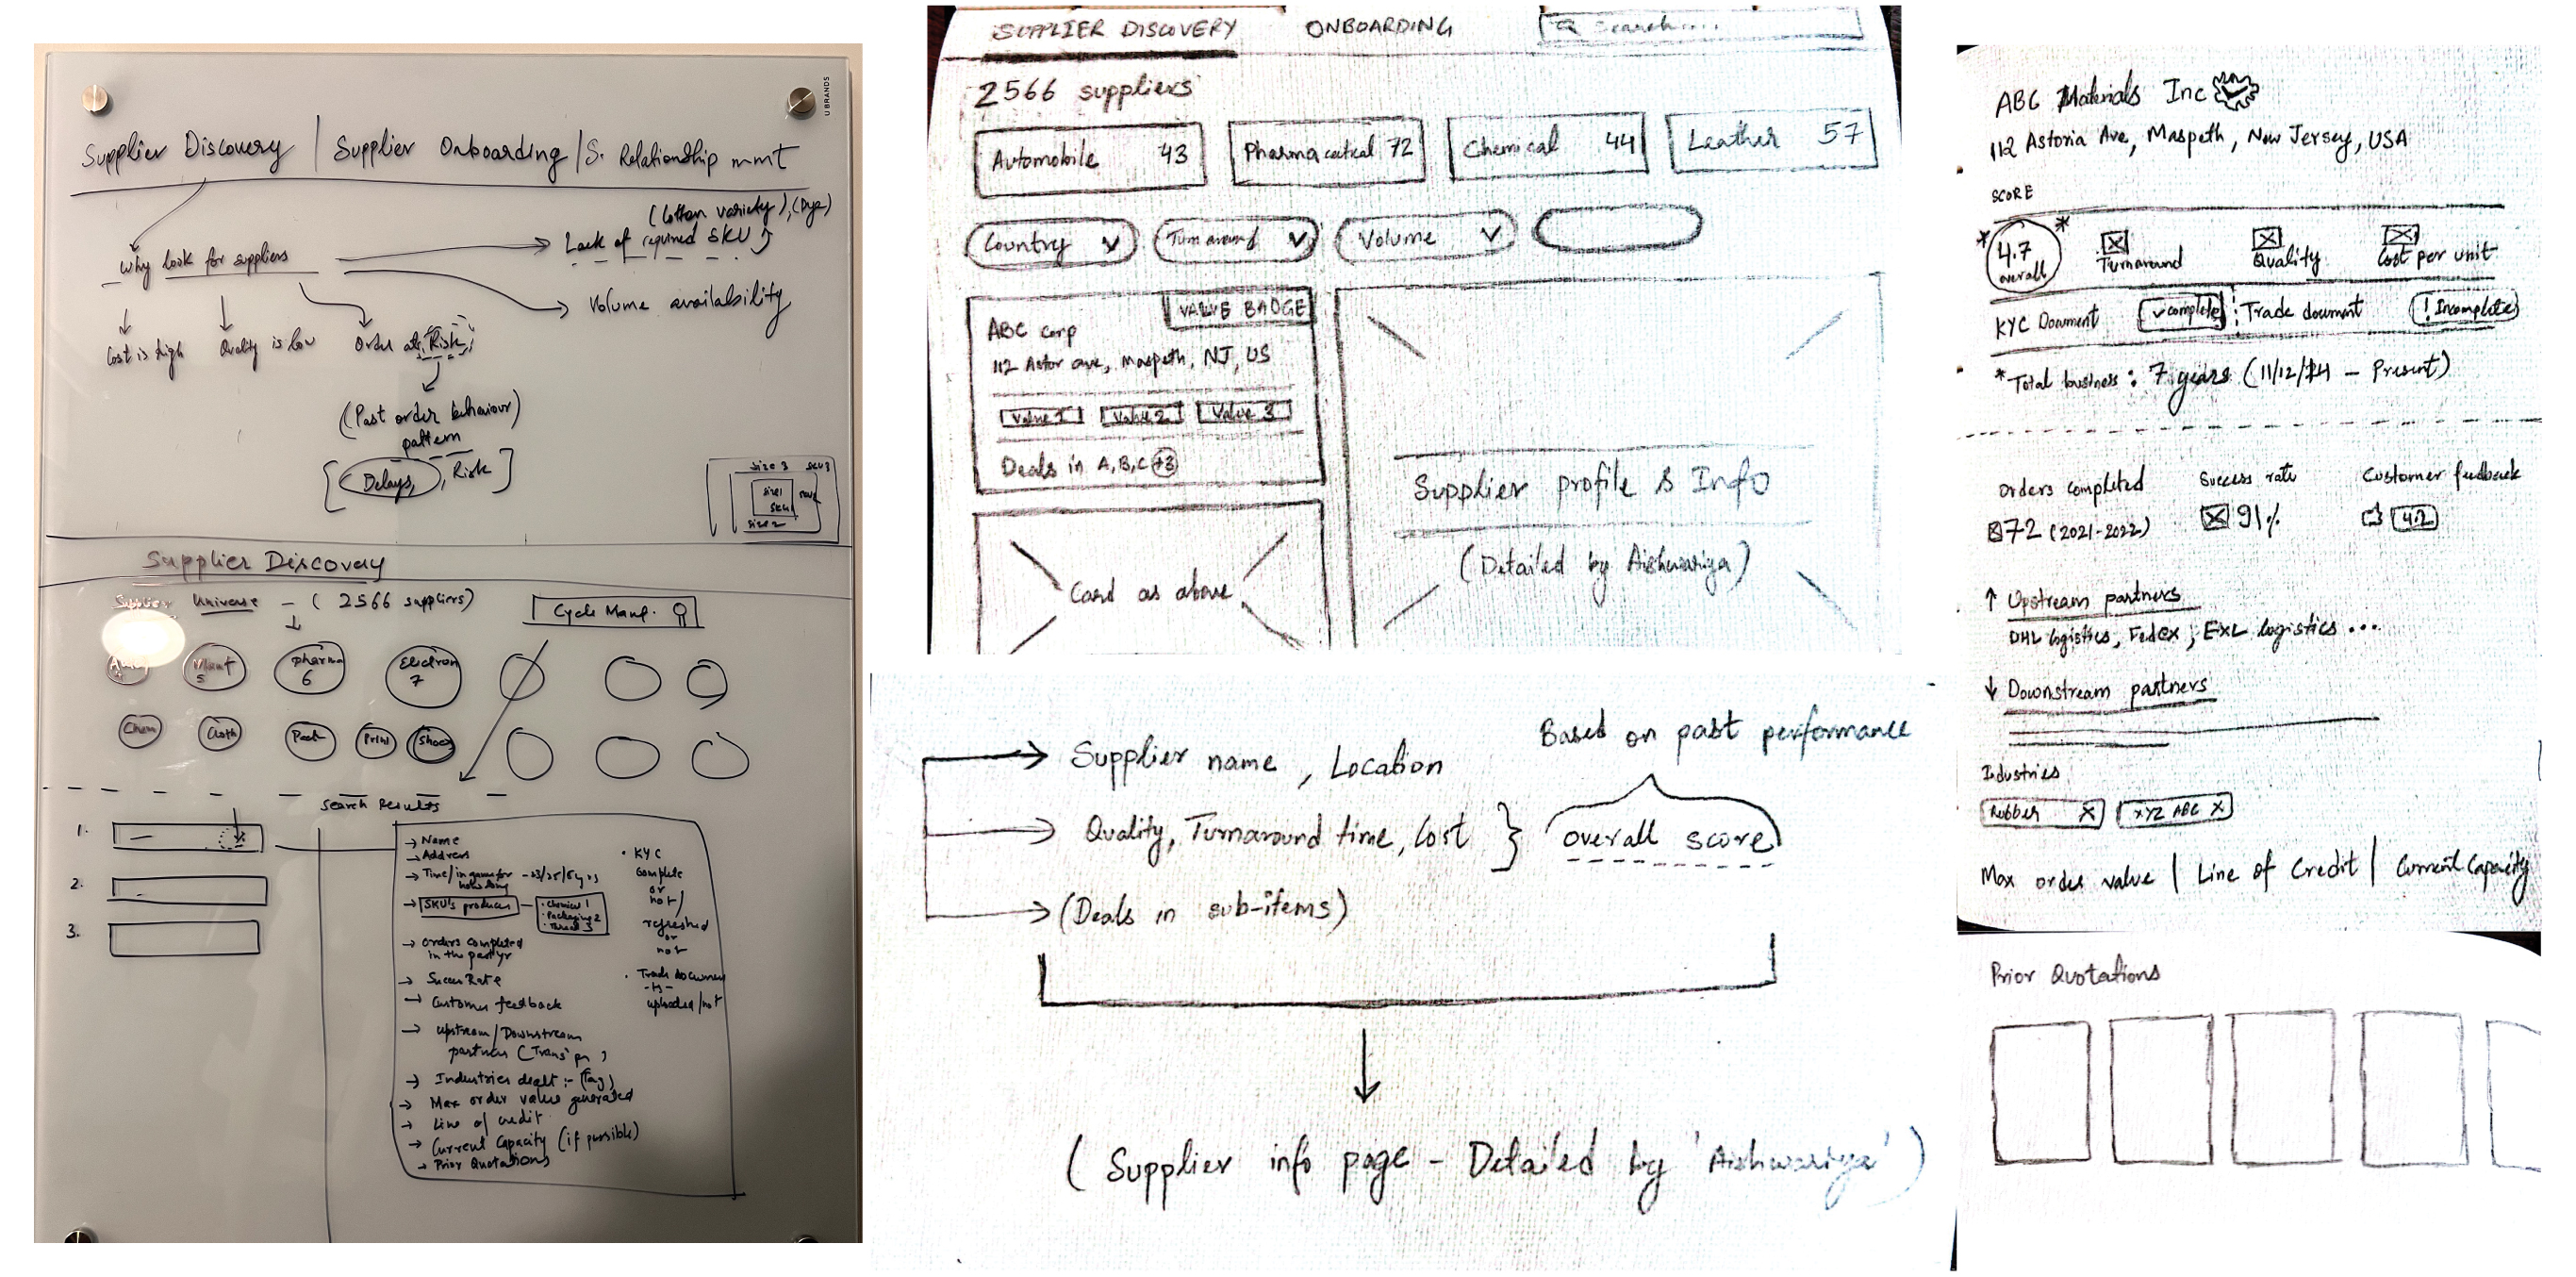 U BRANDS
Supplier Discovery | Supplier Onboarding | S. Relationship mmt
Why look for suppliers
(Cotton variety), (Dye)
Lack of required SKU
Volume availability
Cost is high
Quality is low
Order at Risk
(Past order behaviour)
pattern
[Delays, Risk]
size 3 SKU3
size1
SKU1
size 2
Supplier Discovery
Supplier Universe - ( 2566 suppliers)
Cycle Manf.
Pharma
6
Electron
7
5
Chem
Cloth
Pack
Print
Shoes
Search Results
1.
2.
3.
→ Name
→ Address
→ Time/in game for
how long
→ SKU's produces
• Chemical 1
• Packaging 2
• Thread 3
→ Orders completed
in the past yr
→ Success Rate
→ Customer feedback
→ Upstream/Downstream
partners
→ Industries dealt :- (Tag)
→ Max order value generated
→ Line of credit
→ Current Capacity (if possible)
→ Prior Quotations
• KYC
Complete
or
not/
refreshed
or
not
• Trade documen
-ts-
uploaded/not
SUPPLIER DISCOVERY
ONBOARDING
Search...
2566 suppliers
Automobile 43
Pharmaceutical 72
Chemical 44
Leather 57
Country
Turn around
Volume
VALUE BADGE
ABC corp
112 Astor ave, Maspeth, NJ, US
Value 1
Value 2
Value 3
Deals in A,B,C +3
Card as above
Supplier profile & Info
(Detailed by Aishwariya)
Based on past performance
Supplier name, Location
Quality, Turnaround time, Cost } overall score
(Deals in sub-items)
( Supplier info page - Detailed by 'Aishwariya' )
ABC Materials Inc
112 Astoria Ave, Maspeth, New Jersey, USA
SCORE
4.7
overall
Turnaround
Quality
Cost per unit
KYC Document
complete
Trade document
! Incomplete
*Total business: 7 years (11/12/14 - Present)
Orders completed
72 (2021-2022)
Success rate
91%
Customer feedback
4.2
↑ Upstream partners
DHL logistics, Fedex, EXL logistics ...
↓ Downstream partners
Industries
Rubber X
XYZ ABC X
Max order value | Line of Credit | Current Capacity
Prior Quotations